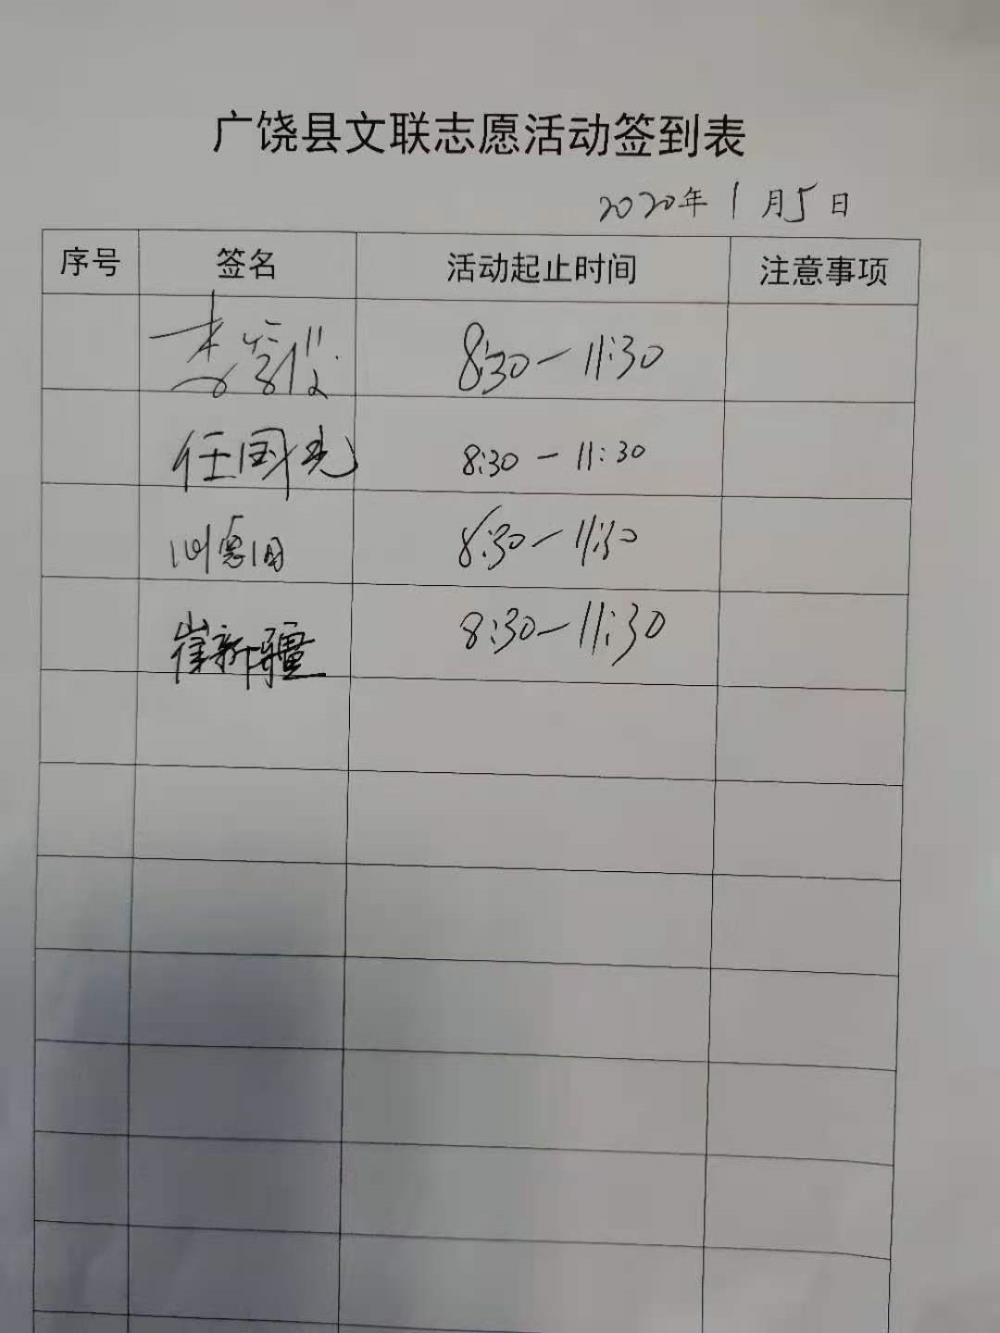 广饶县文联志愿活动签到表
2020年1月5日
序号 签名 活动起止时间 注意事项
李 8:30-11:30
任国光 8:30-11:30
8:30-11:30
崔新疆 8:30-11:30